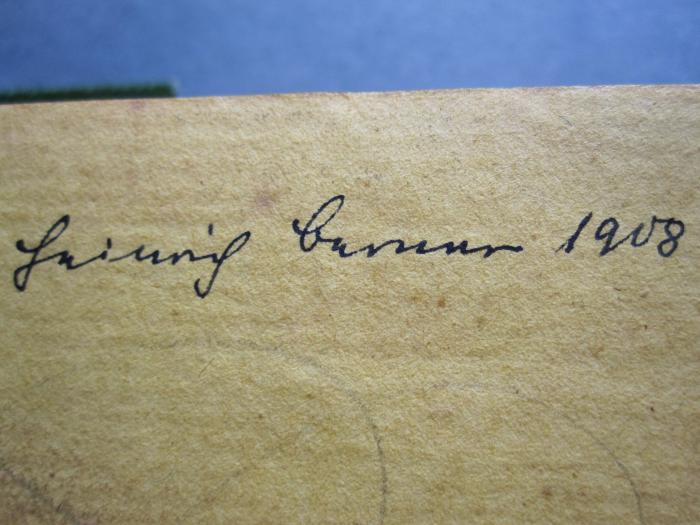 Heinrich Berner 1908